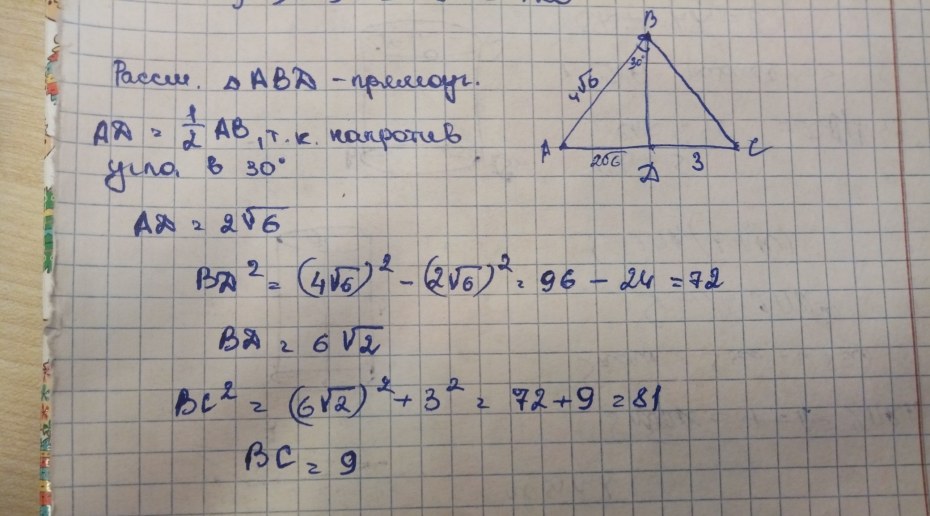 Рассм. △ ABD - прямоуг.
AD = 1/2 AB, т.к. напротив
угла в 30°
AD = 2√6
BD² = (4√6)² - (2√6)² = 96 - 24 = 72
BD = 6√2
BC² = (6√2)² + 3² = 72 + 9 = 81
BC = 9
B
30°
4√6
A
2√6
D
3
C